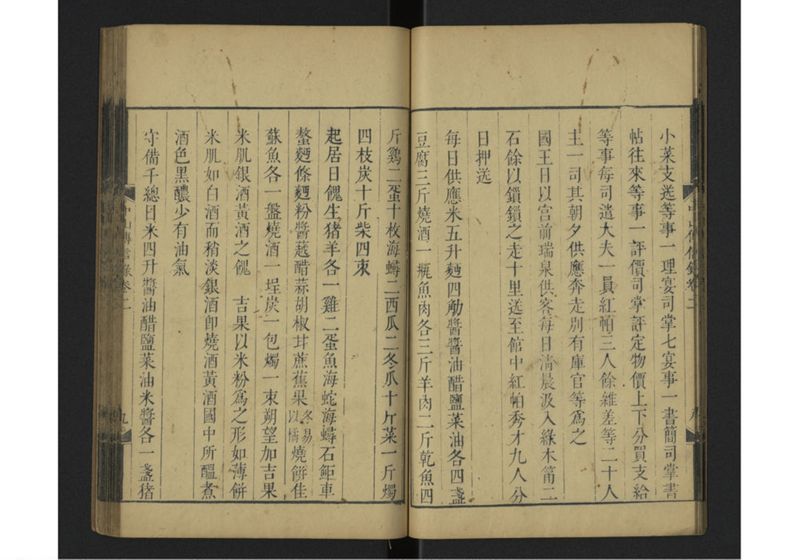 小菜支送等事一理宴司掌七宴事一書簡司掌書
帖往來等事一評價司掌評定物價上下分買支給
等事每司遣大夫一員紅帕三人餘雜差等二十人
主一司其朝夕供應奔走別有庫官等爲之
國王日以宮前瑞泉供客每日清晨汲入綠木甬二
石餘以鎖鎖之走十里送至館中紅帕秀才九人分
日押送
每日供應米五升麵四觔醬醬油醋鹽菜油各四盞
豆腐三斤燒酒一瓶魚肉各三斤羊肉二斤乾魚四
斤鷄二蛋十枚海蟳二西瓜二冬瓜十斤菜一斤燭
四枝炭十斤柴四束
起居日餽生猪羊各一雞二蛋魚海蛇海蟳石鉅車
螯麵條麵粉醬越醋蒜胡椒甘蔗蕉果冬易以橘燒餅佳
蘇魚各一盤燒酒一埕炭一包燭一束朔望加吉果
米肌銀酒黃酒之餽 吉果以米粉爲之形如薄餅
米肌如白酒而稍淡銀酒卽燒酒黃酒國中所醞煮
酒色黑醲少有油氣
守備千總日米四升醬油醋鹽菜油米醬各一盞猪
中山傳信錄卷二
九